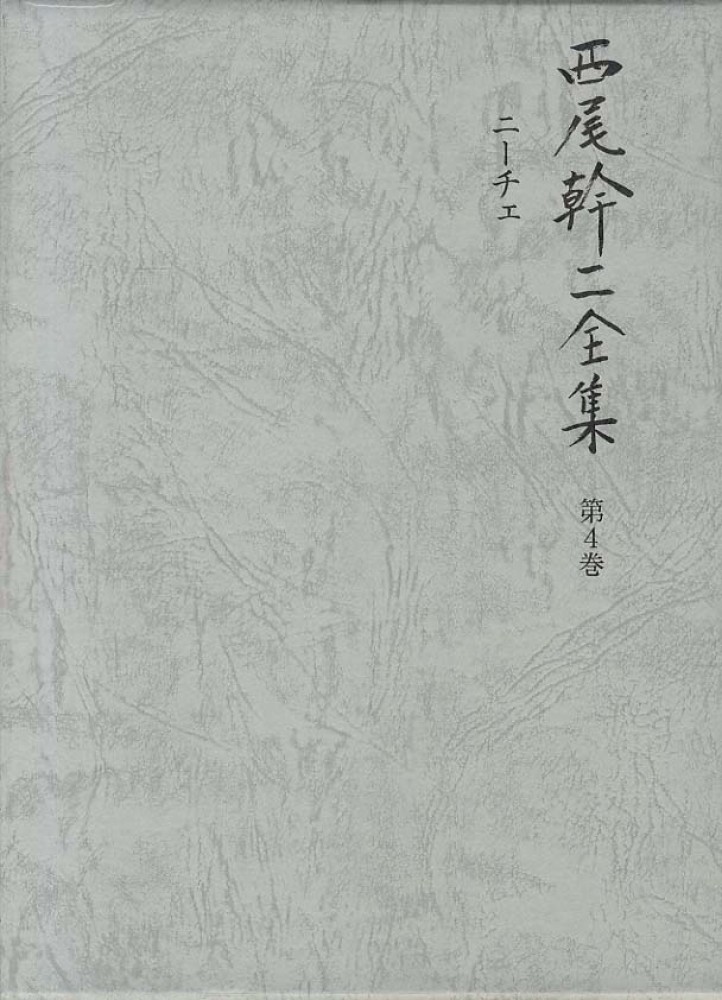 西尾幹二全集 第4巻
ニーチェ